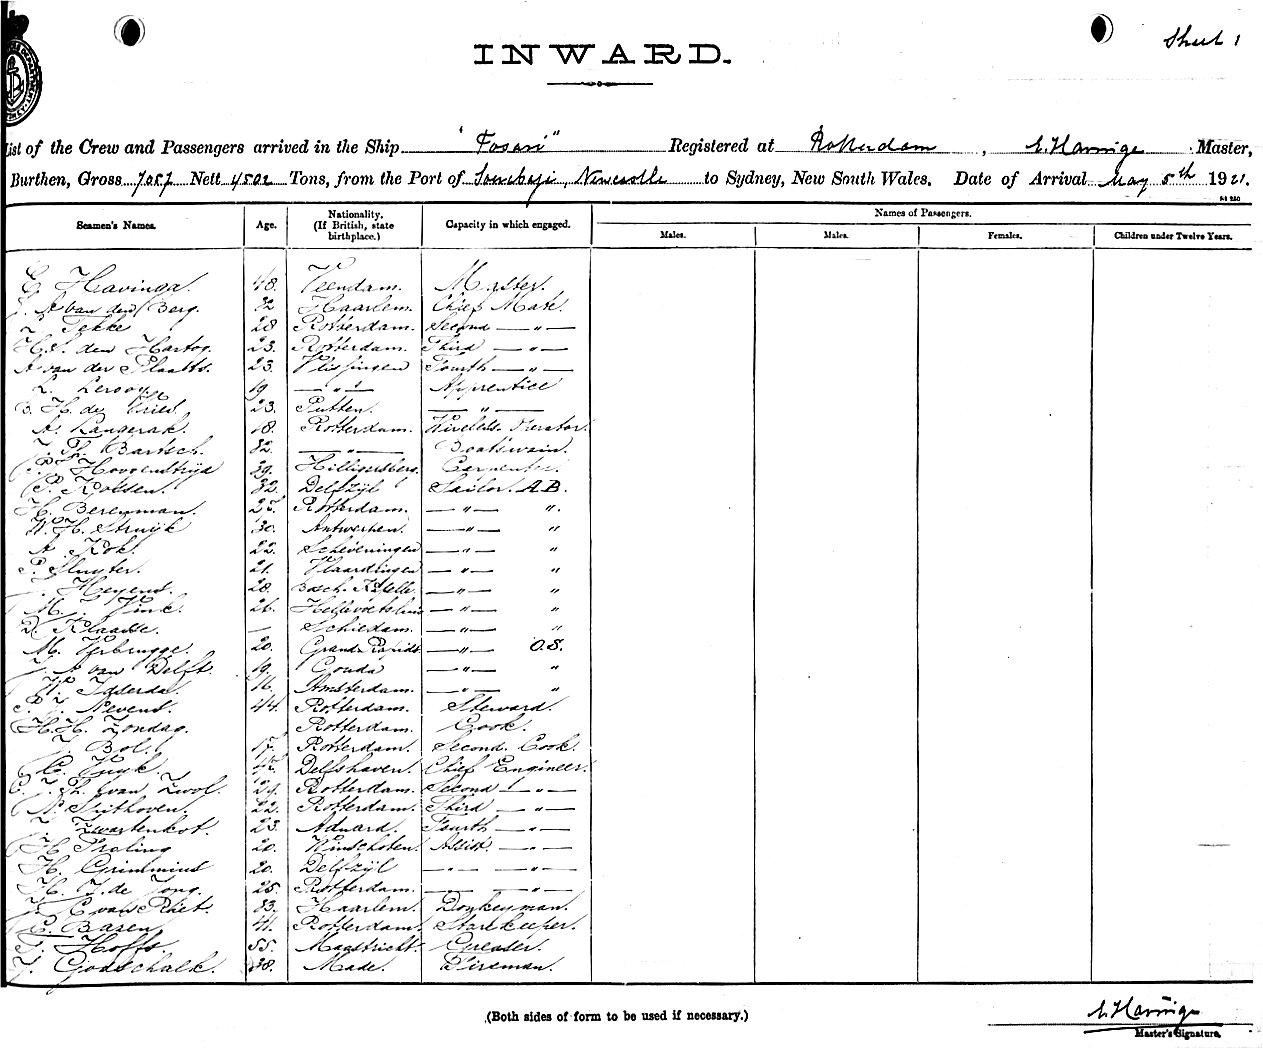 Sheet 1
INWARD.
List of the Crew and Passengers arrived in the Ship "Tosari" Registered at Rotterdam, E. Havinga Master,
Burthen, Gross 7057 Nett 4502 Tons, from the Port of Newcastle to Sydney, New South Wales. Date of Arrival May 5th 1921.
Seamen's Names. Age. Nationality. (If British, state birthplace.) Capacity in which engaged. Names of Passengers.
Males. Males. Females. Children under Twelve Years.
E. Havinga. 48. Veendam. Master.
A van den Berg. 32 Haarlem. Chief Mate.
Tekke 28 Rotterdam. Second — " —
H. S. den Hartog. 23. Rotterdam. Third — " —
A van der Plaats. 23. Vlissingen Fourth — " —
L. Lerooy. 19 — " — Apprentice
H. de Vries. 23. Putten. — " —
A. Langerak. 18. Rotterdam. Wireless Operator.
Bartsch. 32. — " — Boatswain.
P. Hoogenstrijd 39. Hilligersberg. Carpenter.
P. Kolsen. 32. Delfzijl Sailor. A.B.
H. Berenman. 25. Rotterdam. — " — ".
W. H. Struijk 30. Antwerpen. — " — "
A. Kok. 22. Scheveningen — " — "
P. Sluyter. 21. Vlaardingen — " — "
Heyend. 28. Bosch. Kapelle. — " — "
M. J. Vink. 26. Hellevoetsluis — " — "
D. Klaasse. — Schiedam. — " — "
M. Verbrugge. 20. Grand Rapids — " — O.S.
J. A van Delft. 19. Gouda — " — "
W. Idserda. 16. Amsterdam. — " — "
P. J. Nevens. 44. Rotterdam. Steward.
H. H. Zondag. Rotterdam. Cook.
J. Bol. 17. Rotterdam. Second. Cook.
C. Kuyk. Delfshaven. Chief Engineer.
C. J. Th. van Zwol. 29. Rotterdam. Second — " —
N. Sijthoven. 22. Rotterdam. Third — " —
J. Zwartenkot. 23. Aduard. Fourth — " —
H. Froling 20. Winschoten. Assist. — " —
H. Grimmius 20. Delfzijl — " — — " —
H. J. de Jong. 25. Rotterdam. — — " —
J. C van Riet. 33. Haarlem. Donkeyman.
C. Basen. 41. Rotterdam. Storekeeper.
J. Hoffs. 55. Maastricht. Greaser.
J. Godschalk. 38. Made. Fireman.
(Both sides of form to be used if necessary.)
E. Havinga
Master's Signature.